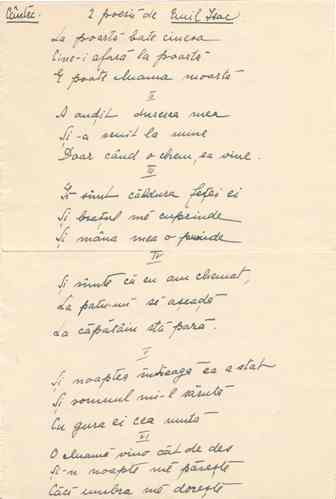 Cântec.
2 poesii de Emil Isac
La poartă bate cineva
Cine-i afară la poartă
E poate Mama moartă
II
A auzit durerea mea
Și-a venit la mine
Doar când o chem, ea vine.
III
Îi simt căldura feței ei
Și brațul mă cuprinde
Și mâna mea o prinde
IV
Și simte că eu am chemat,
La patu-mi se așeade
La căpătâiu stă pară.
V
Și noaptea întreagă ea a stat
Și somnul mi-l sărută
Cu gura ei cea mută
VI
O Mamă vino cât de des
Si-n noapte mă păzește
Căci umbra mă dorește